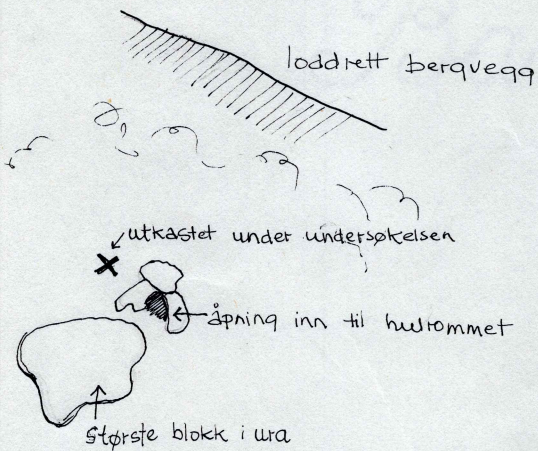 loddrett bergvegg
utkastet under undersøkelsen
åpning inn til hulrommet
største blokk i ura